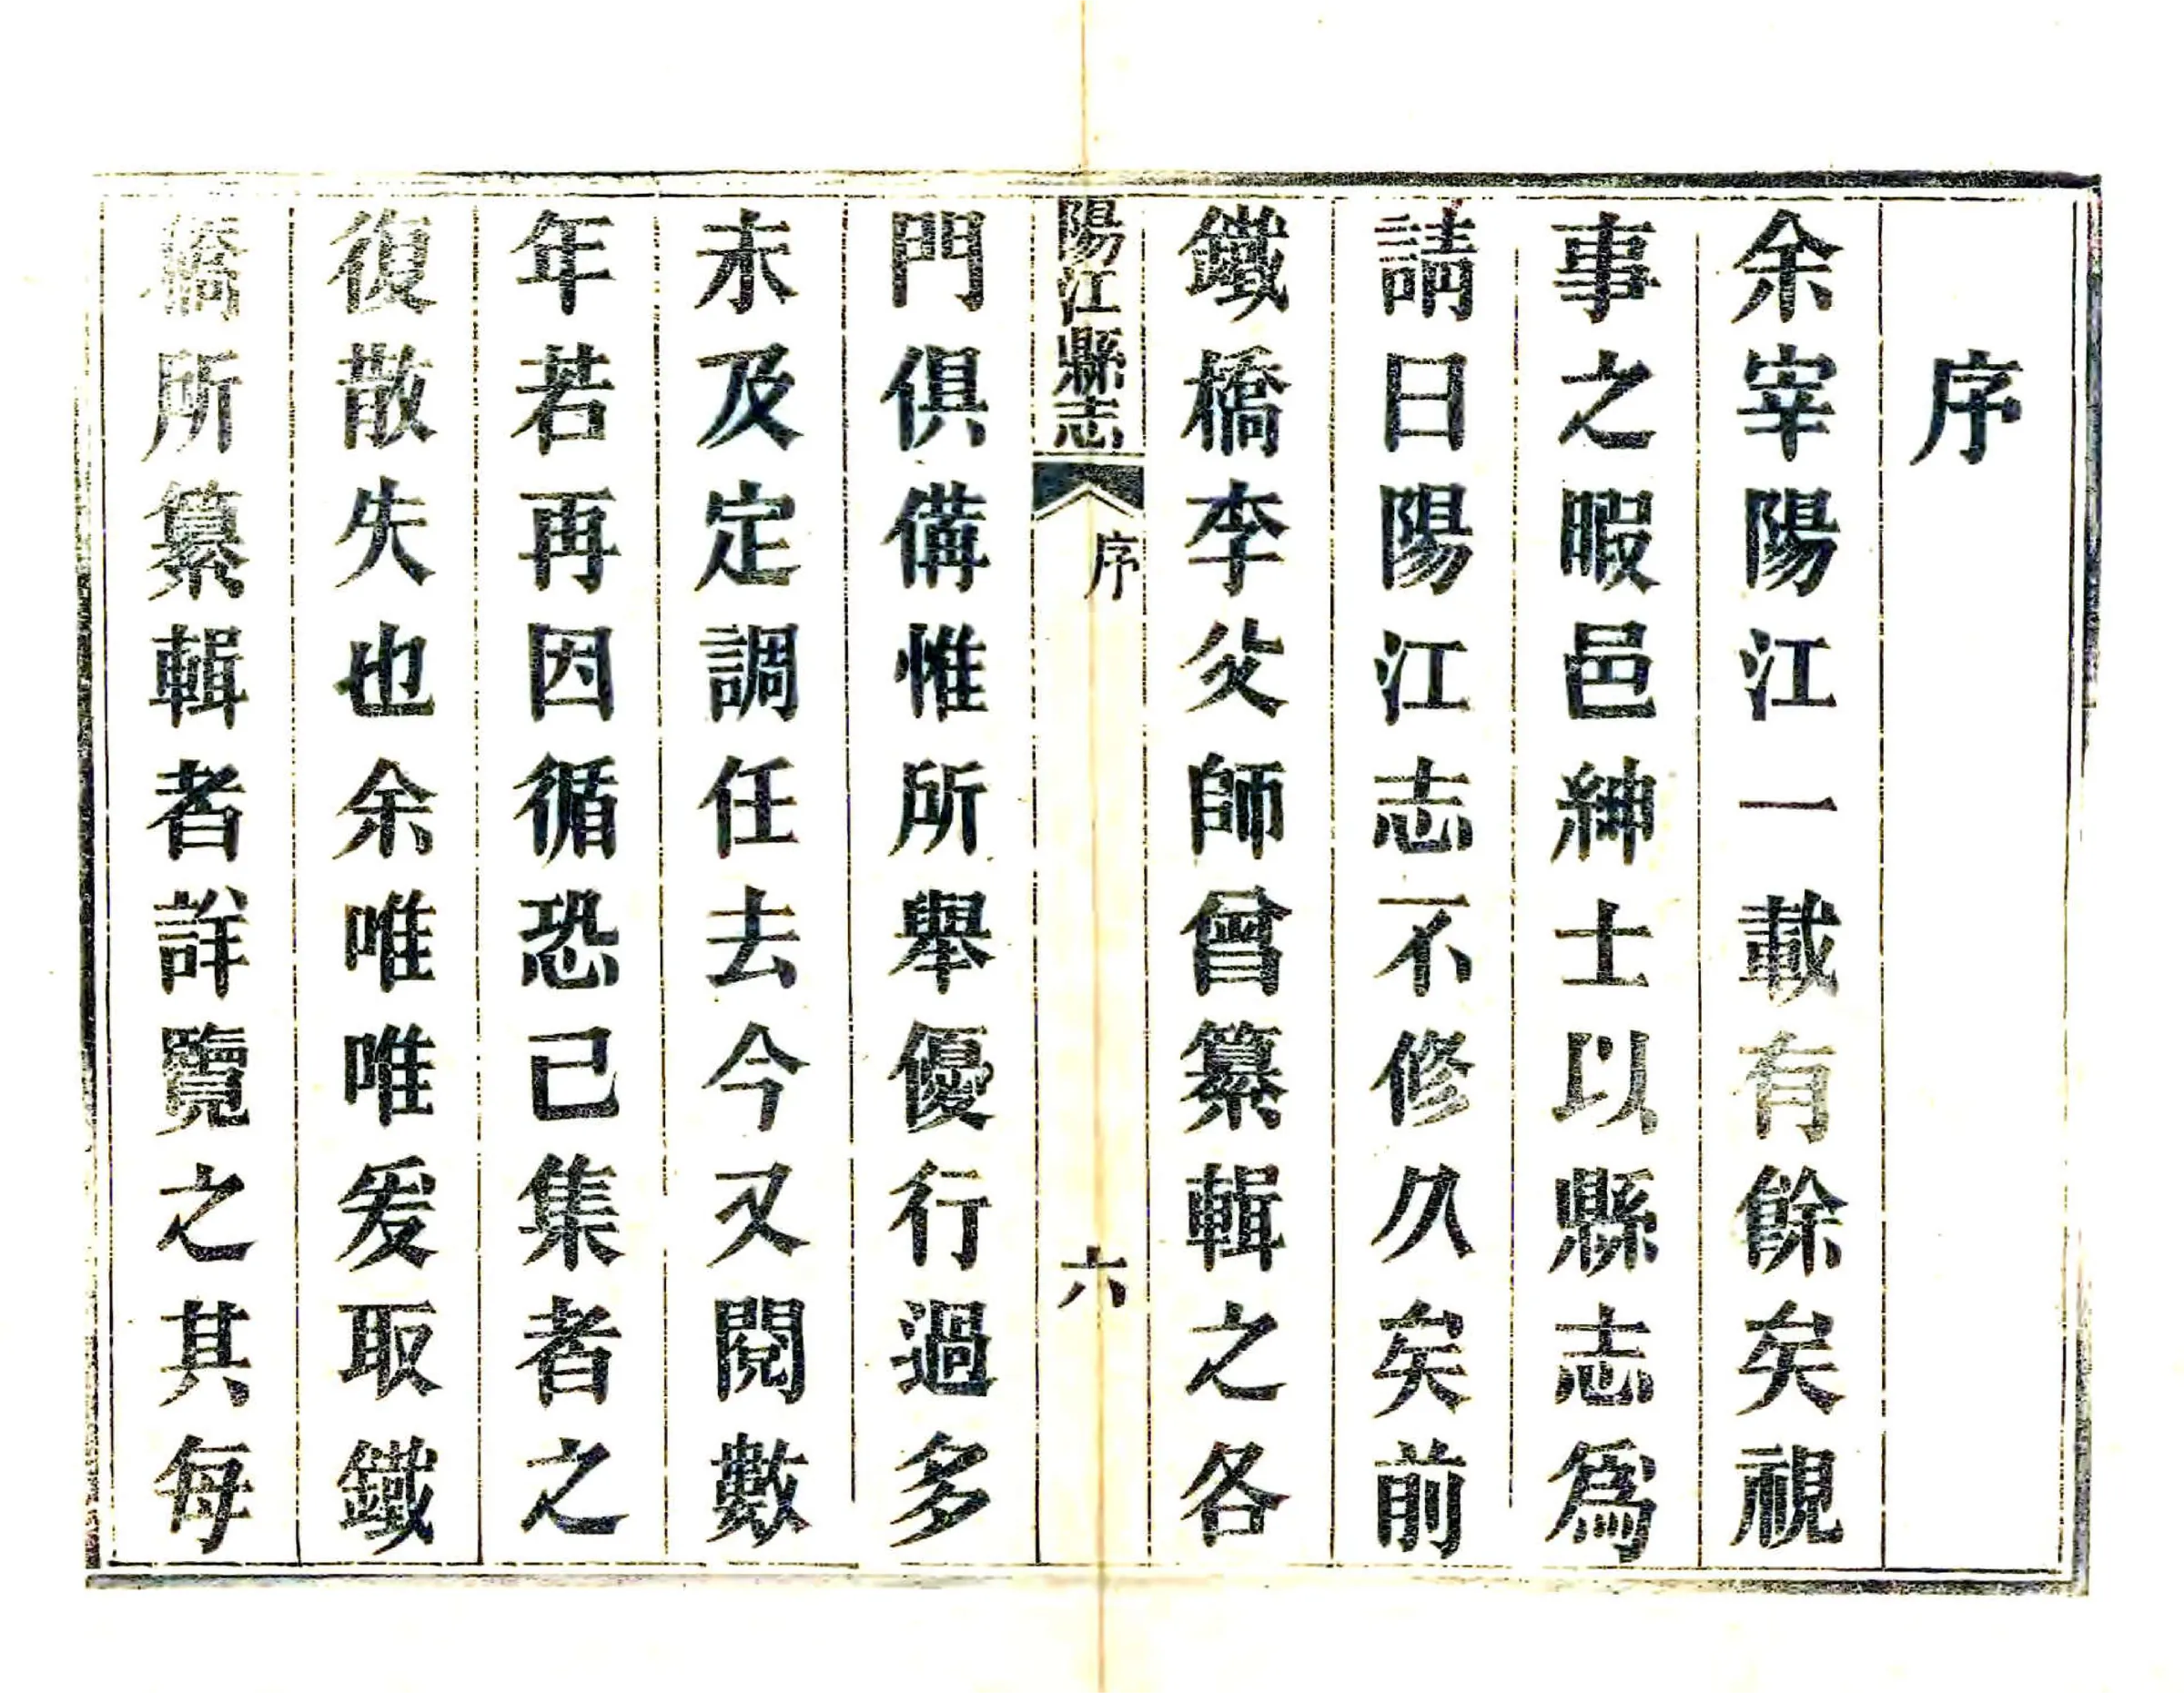 序
余宰陽江一載有餘矣視
事之暇邑紳士以縣志爲
請曰陽江志不修久矣前
鐵橋李父師曾纂輯之各
陽江縣志 序 六
門俱備惟所舉優行過多
未及定調任去今又閱數
年若再因循恐已集者之
復散失也余唯唯爰取鐵
橋所纂輯者詳覽之其每